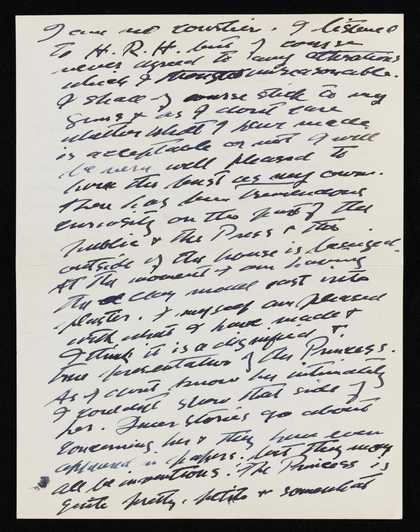 I am no courtier. I listened
to H.R.H. but of course
never agreed to any alterations
which I thought unreasonable.
I shall of course stick to my
Guns & as I dont care
whether what I have made
is acceptable or not I will
be very well pleased to
have the bust as my own.
There has been tremendous
curiosity on the part of the
public & the Press & the
outside of the house is besieged.
At the moment I am having
the clay model cast into
plaster. I myself am pleased
with what I have made &
I think it is a dignified &
true presentation of the Princess.
As I dont know her intimately
I couldnt show that side of
her. Queer stories go about
concerning her & they have even
appeared in papers. but they may
all be inventions. The Princess is
quite pretty. petite & somewhat